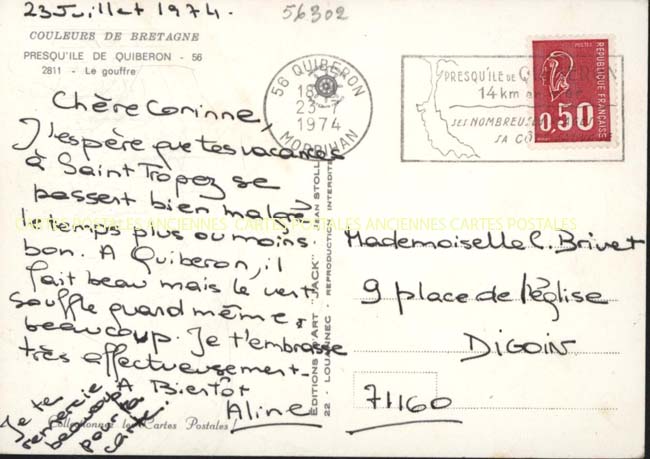 23 Juillet 1974.
56302
COULEURS DE BRETAGNE
PRESQU'ILE DE QUIBERON - 56
2811 - Le gouffre
56 QUIBERON
18
23-7
1974
MORBIHAN
PRESQU'ILE DE QUIBERON
14 km
SES NOMBREUSES
SA CÔ
POSTES
REPUBLIQUE FRANÇAISE
0,50
Chère Corinne,
J'espère que tes vacances
à Saint Tropez se
passent bien malgré
le temps plus ou moins
bon. A Quiberon, il
fait beau mais le vent
souffle quand même
beaucoup. Je t'embrasse
très affectueusement.
A Bientôt
Aline
Je te
remercie
beaucoup
pour ta
carte.
Collectionnez les Cartes Postales !
EDITIONS D'ART "JACK" - JEAN STOLL
22 - LOUANNEC - REPRODUCTION INTERDITE
Mademoiselle C. Brivet
9 place de l'Église
DIGOIN
71160
CARTES POSTALES ANCIENNES CARTES POSTALES ANCIENNES CARTES POSTALES